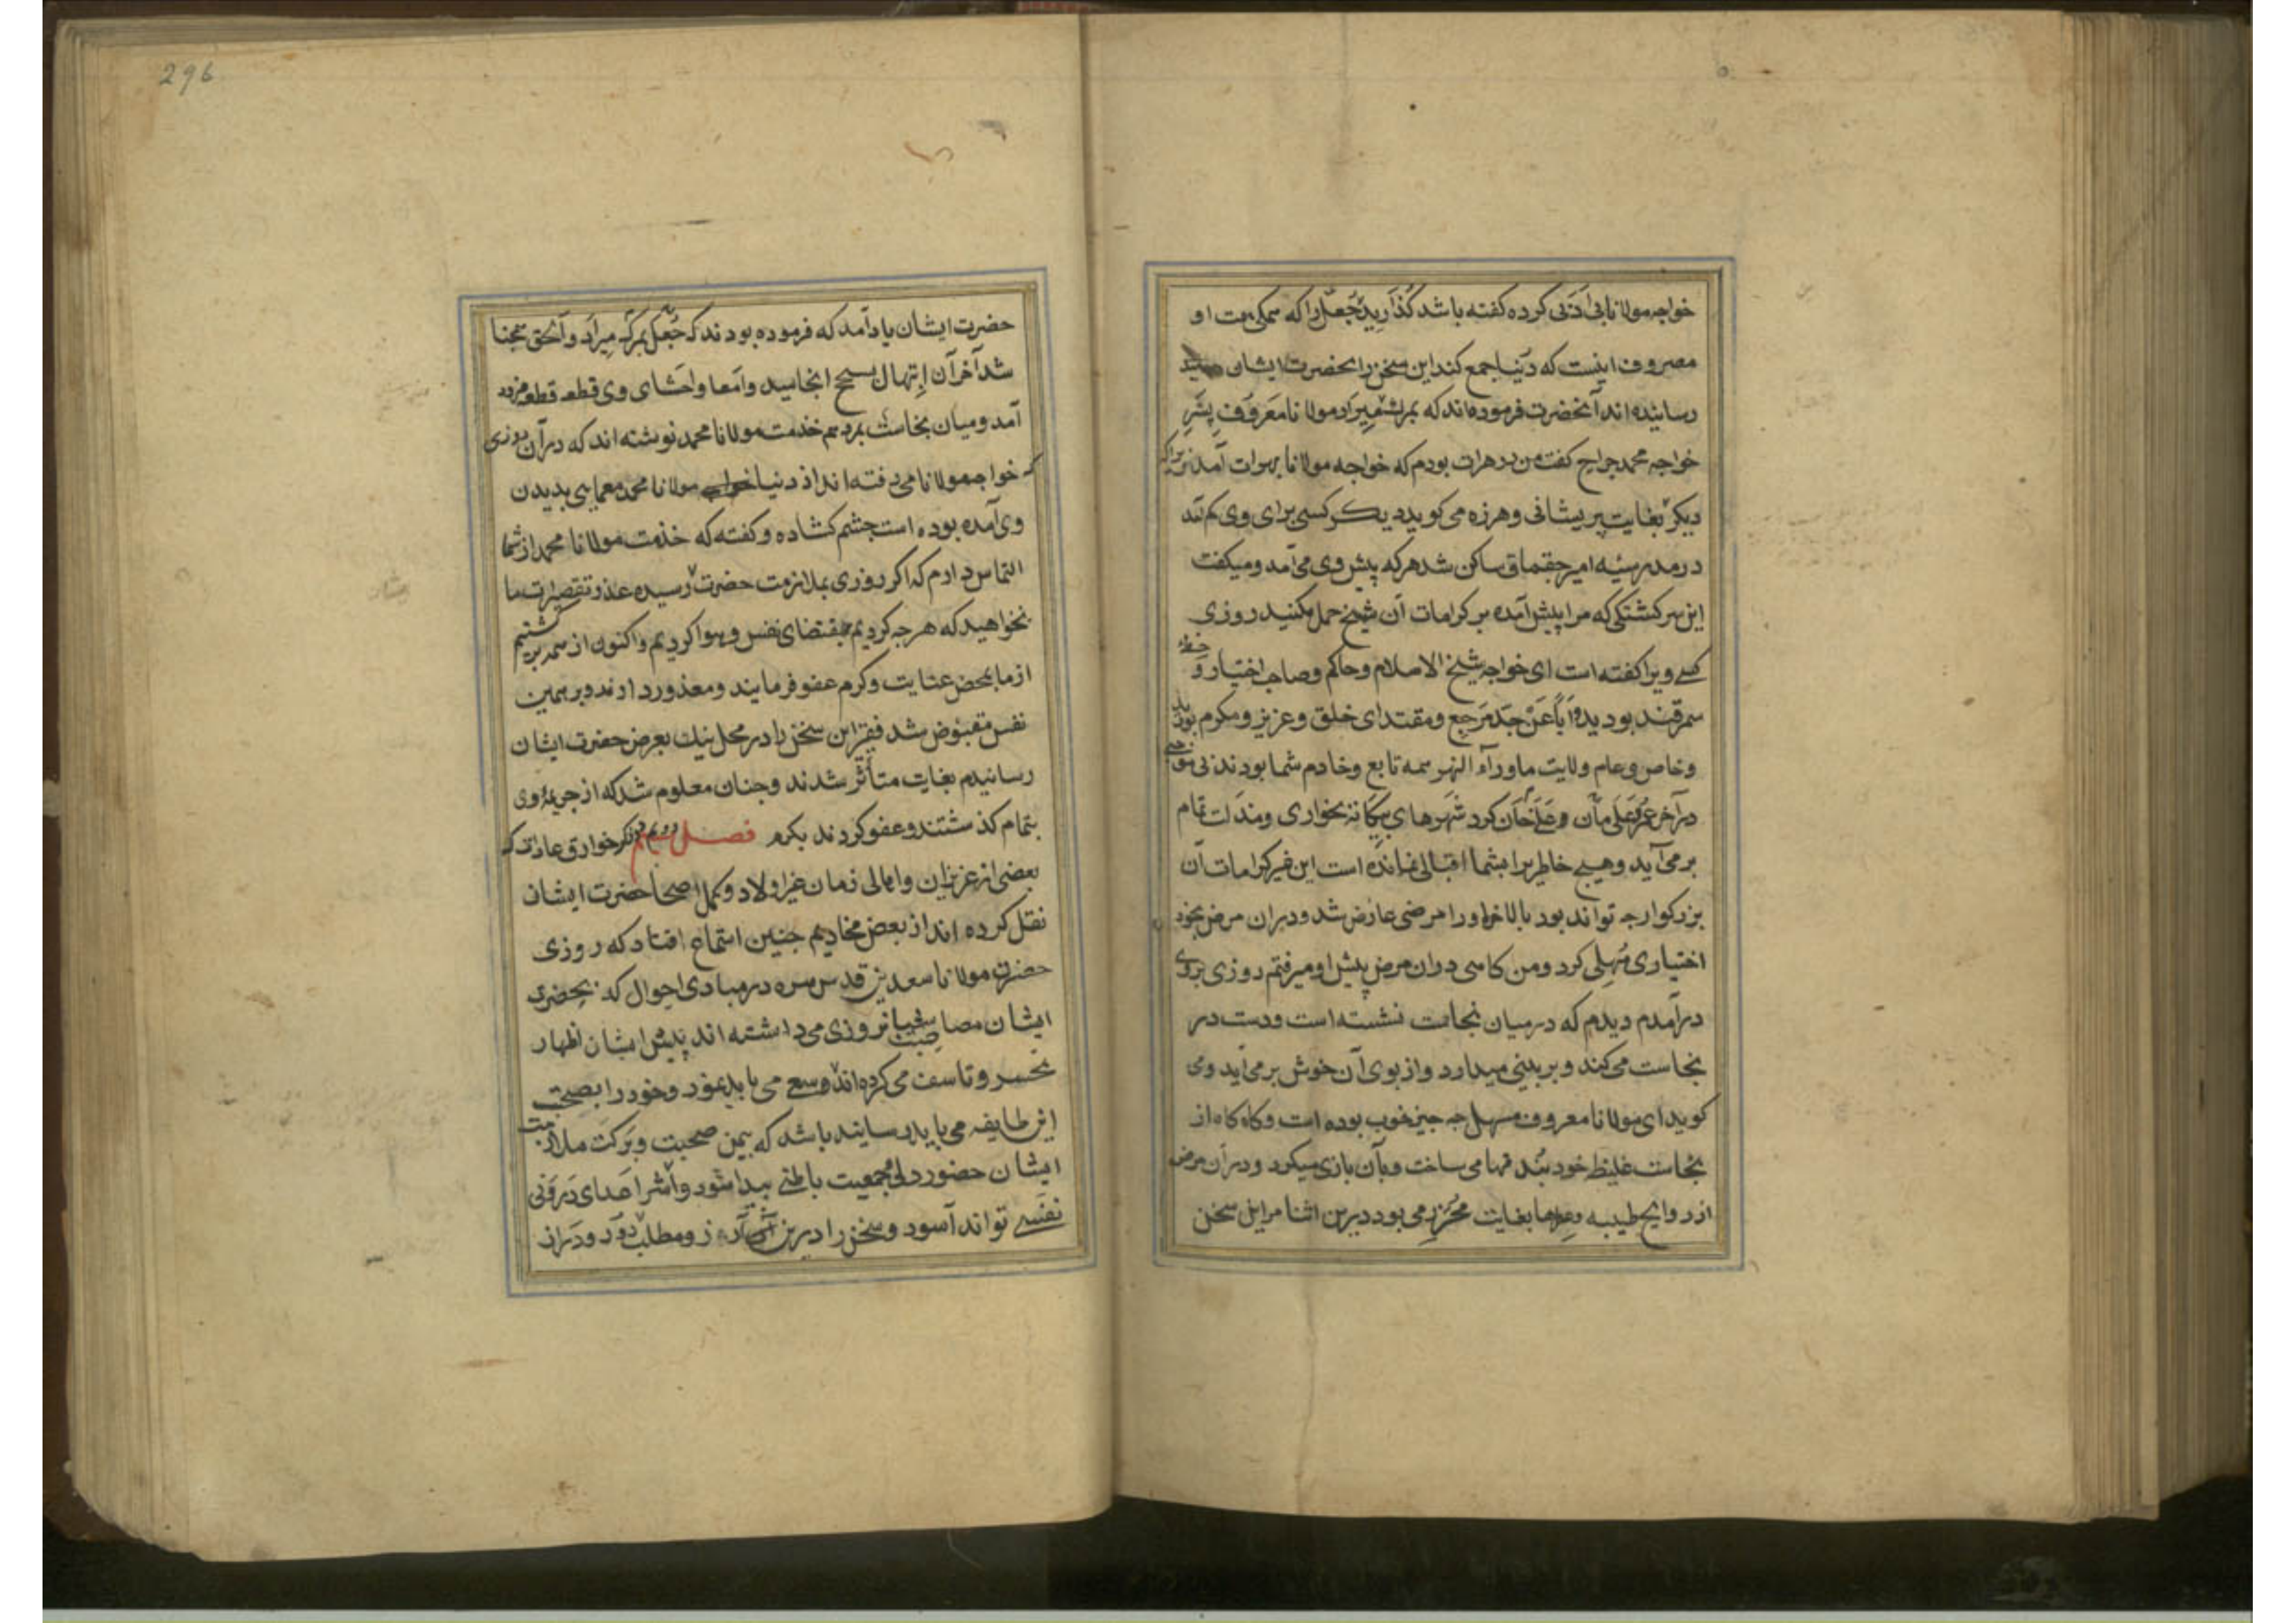 خواجه مولانا بی ادبی کرده گفته باشد گذارید جعل را که همکی همت او
مصروف اینست که دنیا جمع کند این سخن را بحضرت ایشان
رسانیده اند آنحضرت فرموده اند که بمرک میراد مولانا معروف پسر
خواجه محمد جراح گفت من در هرات بودم که خواجه مولانا بهرات آمدند
دیگر بغایت پریشانی و هرزه می کوید دیگر کسی برای وی کم آمد
در مدرسهٔ امیر چقماق ساکن شد هرکه پیش وی می آمد و میکفت
این سرکشتکی که مرا پیش آمده بر کرامات آن شیخ حمل مکنید روزی
کسے ویرا کفته است ای خواجه شیخ الاسلام وحاکم وصاحب اختیار و خطهٔ
سمرقند بودید و اباً عن جد مرجع ومقتدای خلق وعزیز ومکرم بودید
وخاص وعام ولایت ماورآء النهر همه تابع وخادم شما بودند
در آخر عمر علی مان و علی خان کرد شهرهای بیگانه بخواری ومذلت تمام
بر می آید وهیچ خاطر برا بشما اقبالی نمانده است این غیر کرامات آن
بزرکوار چه تواند بود بالاخره او را مرضی عارض شد ودران مرض بخود
اختیاری مسهلی کرد ومن کاهی دران مرض پیش او میرفتم روزی بروی
درآمدم دیدم که در میان نجاست نشسته است ودست در
نجاست می کند و بر بینی میدارد و از بوی آن خوش بر می آید و می
کوید ای مولانا معروف مسهل چه چیز خوب بوده است وکاه کاه از
نجاست غلیظ خود بندقها می ساخت وبآن بازی میکرد ودر آن مرض
از روایح طیبه وعطرها بغایت محترز می بود درین اثنا مرا این سخن
296
حضرت ایشان یاد آمد که فرموده بودند که جعل بمرک میراد و الحق همچنا
شد آخر آن اسهال بسحج انجامید وامعا واحشای وی قطعه قطعه فرود
آمد و میان نجاست بمرد هم خدمت مولانا محمد نوشته اند که در آن روزی
که خواجه مولانا می رفته اند از دنیا مولانا محمد معمایی بدیدن
وی آمده بوده است چشم کشاده و کفته که خدمت مولانا محمد از شما
التماس دارم که اکر روزی بملازمت حضرت رسیده عذر تقصیرات ما
بخواهید که هرچه کردیم بمقتضای نفس وهوا کردیم واکنون از سمر بریم گشتیم
از ما بمحض عنایت وکرم عفو فرمایند ومعذور دارند وبر همین
نفس مقبوض شد فقیر این سخن را در محل نیک بعرض حضرت ایشان
رسانیدم بغایت متأثر شدند وچنان معلوم شد که از جریمهٔ وی
بتمام کذشتند و عفو کردند بکرم فصل دوم در ذکر خوارق عادات که
بعضی از عزیزان واهالی زمان غیر اولاد وکمل اصحاب حضرت ایشان
نقل کرده اند از بعض مخادیم چنین استماع افتاد که روزی
حضرت مولانا سعدین قدس سره در مبادی احوال که بحضرت
ایشان مصاحبت شبانروزی می داشته اند پیش ایشان اظهار
تحسر و تاسف می کرده اند وسعی می باید نمود وخود را بصحبت
این طایفه می باید رسانید باشد که بیمن صحبت وبرکت ملازمت
ایشان حضور دل وجمعیت باطنی پیدا شود و از شر اعدای درونی
نفسے تواند آسود و سخن را درین آرزو ومطلب دور ودراز